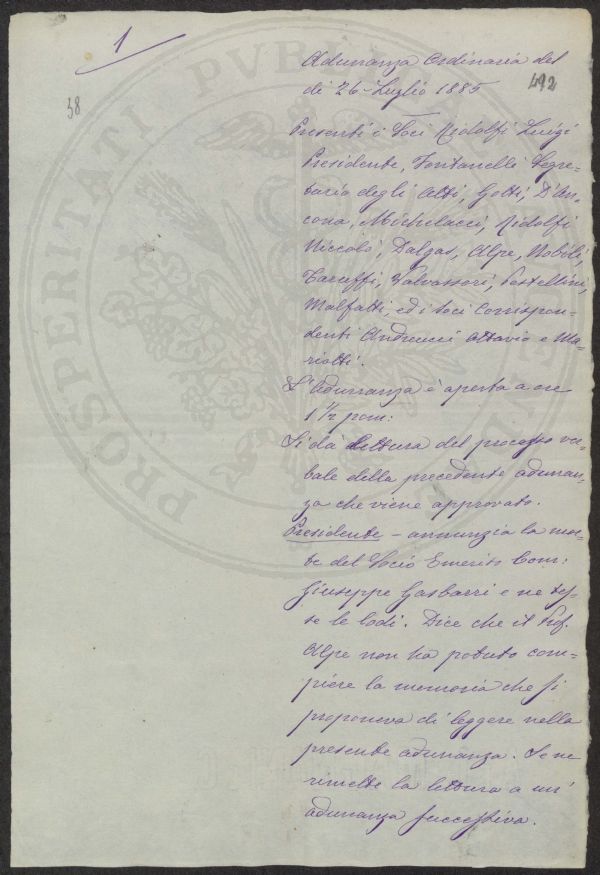 1
Adunanza Ordinaria del
dì 26 Luglio 1885
492
58
Presenti i Soci Ridolfi Luigi
Presidente, Fontanelli Segre=
tario degli Atti, Gotti, D'An=
cona, Michelacci, Ridolfi
Niccolò, Dalgas, Alpe, Nobili,
Targeffi, Valvassori, Pestellini,
Malfatti, ed i Soci Corrispon=
denti Andreucci Ottavio e Ma=
riotti.
L'adunanza è aperta a ore
1 ½ pom:
Si dà lettura del processo ver=
bale della precedente adunan=
za che viene approvato.
Presidente - annunzia la mor=
te del Socio Emerito Com:
Giuseppe Gasbarri e ne tes=
se le lodi. Dice che il Prof.
Alpe non ha potuto com=
piere la memoria che si
proponeva di leggere nella
presente adunanza. Se ne
rimette la lettura a un'
adunanza successiva.
PROSPERITATI PVBLICAE